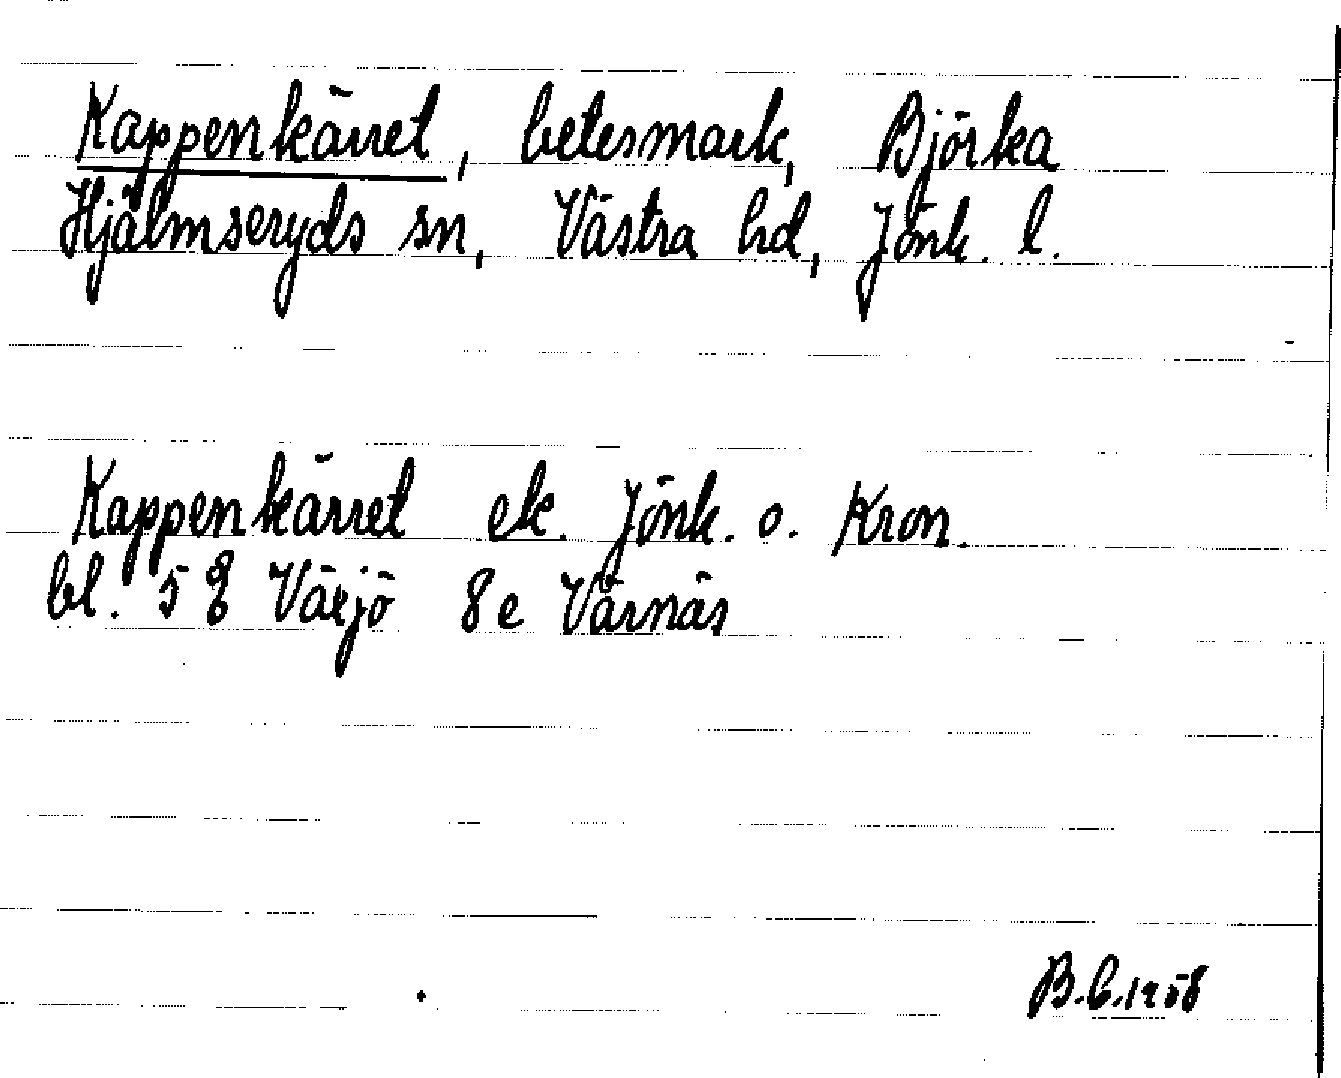 Kappenkärret, betesmark, Björka
Hjälmseryds sn, Västra hd, Jönk. l.
Kappenkärret ek. Jönk. o. Kron.
bl. 5 E Växjö 8e Värnäs
B.G. 1958